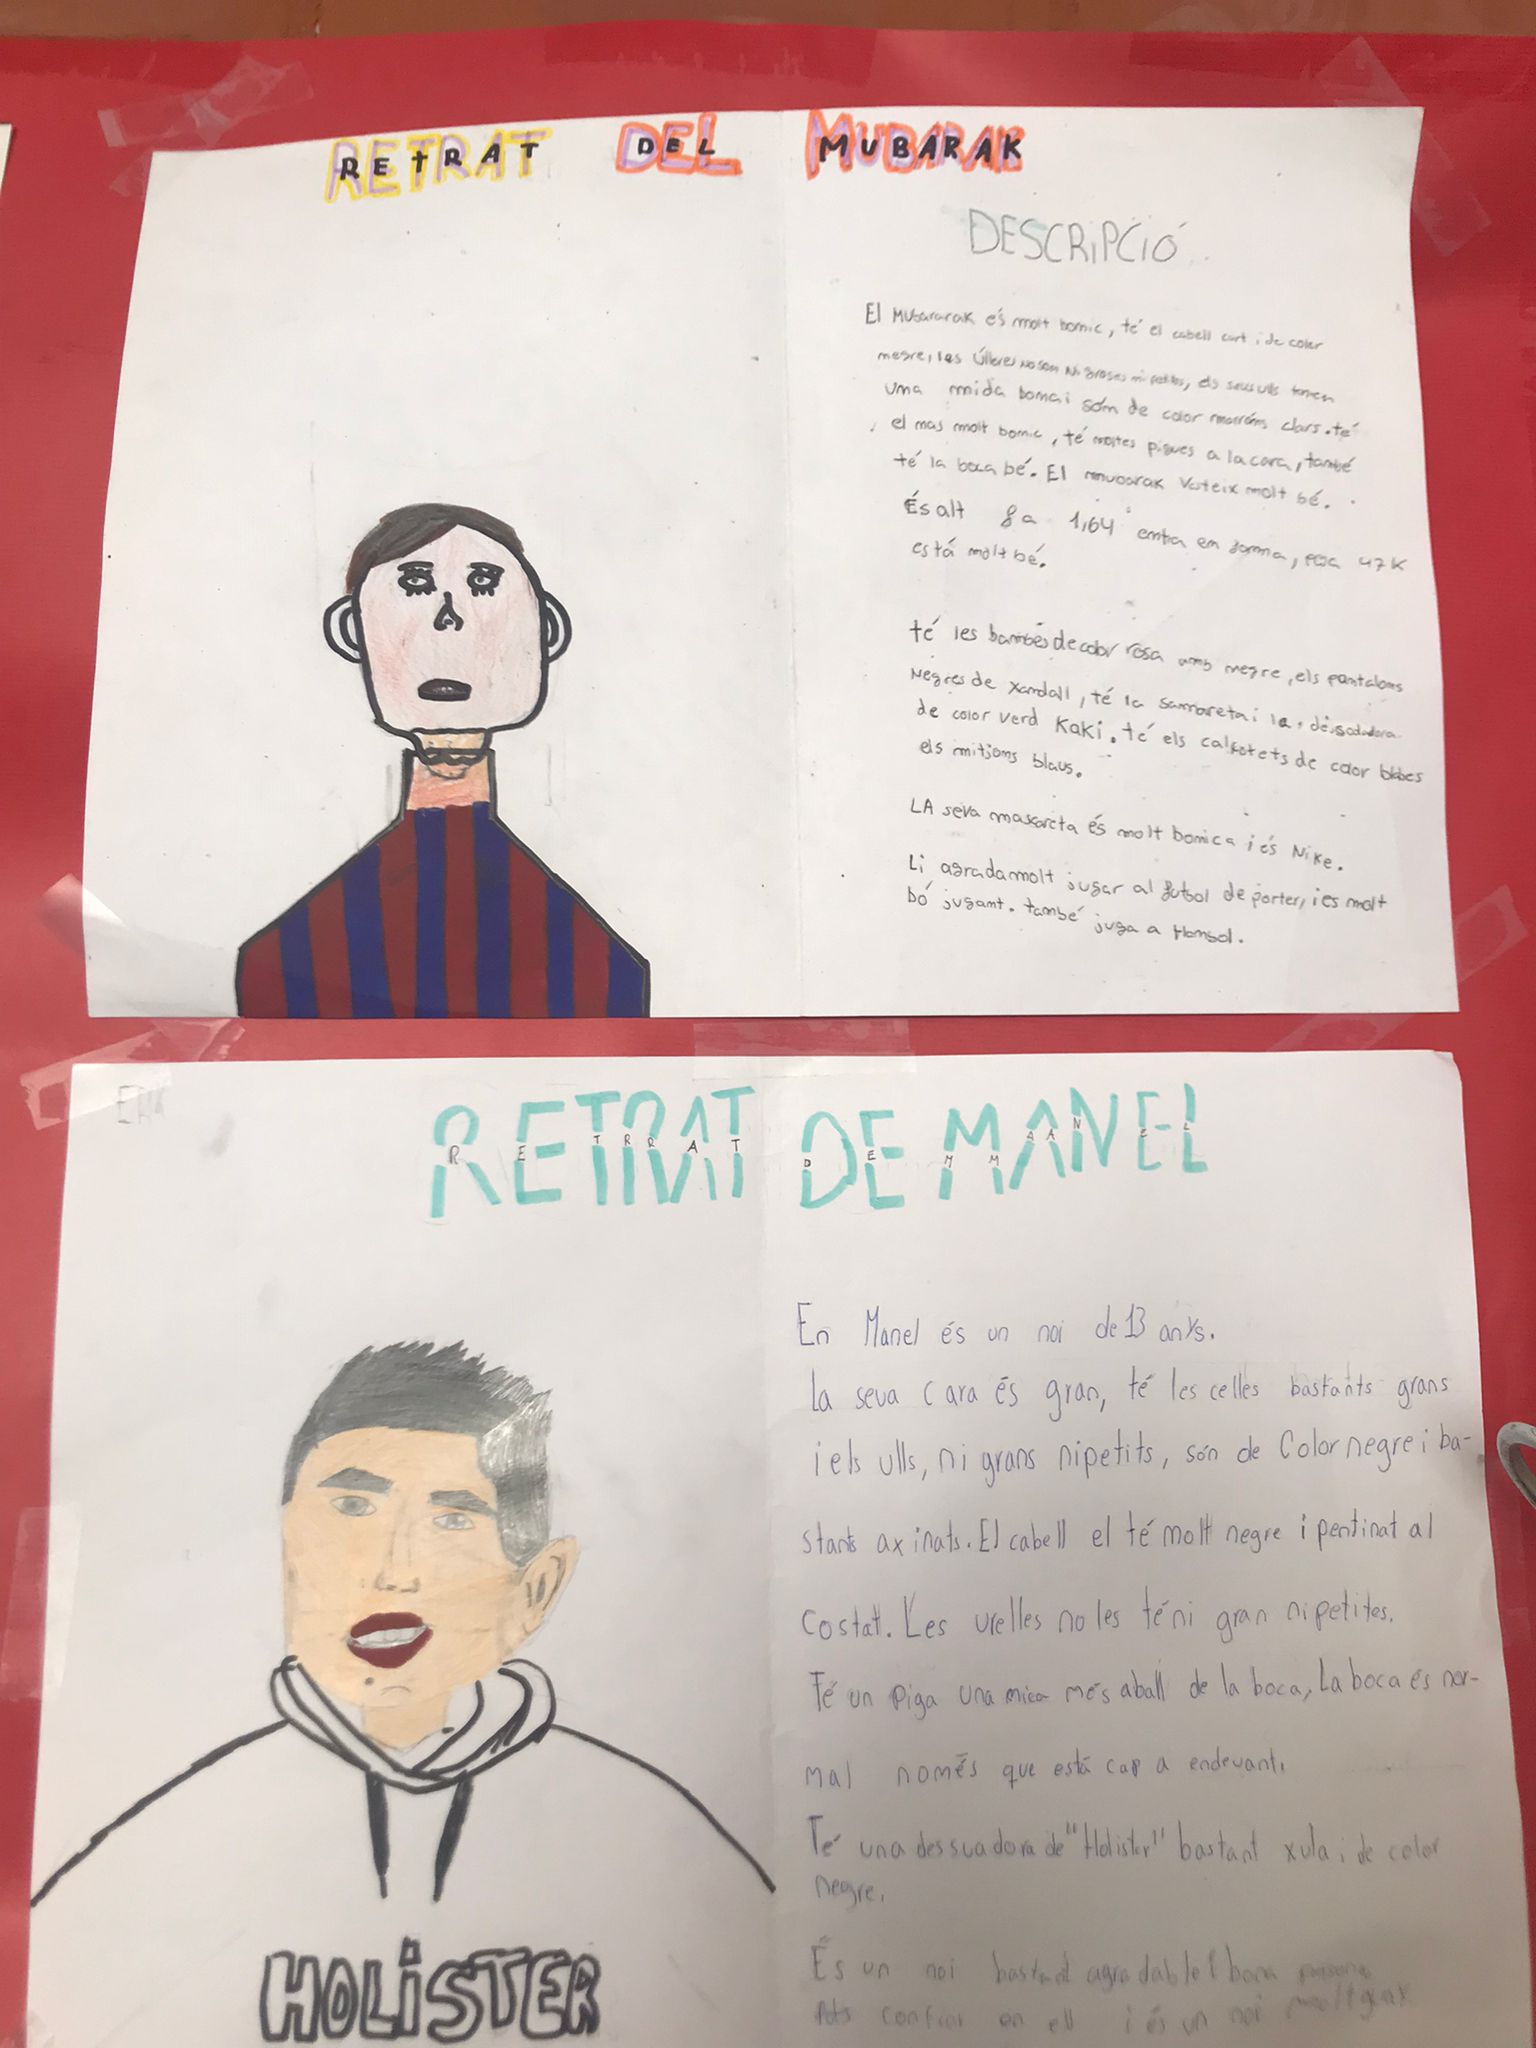 RETRAT DEL MUBARAK
DESCRIPCIÓ
El Mubararak és molt bonic, té el cabell curt i de color
negre, les Úlleres no son ni groses ni petites, els seus ulls tenen
una mida bona i són de color marróns clars. té
el nas molt bonic, té moltes pigues a la cara, també
té la boca bé. El mubarak Vesteix molt bé.
És alt fa 1,64 entra en forma, pesa 47K
está molt bé.
té les bambes de color rosa amb negre, els pantalons
Negres de xandall, té la samarreta i la
de color verd Kaki. té els calçotets de color
els mitjons blaus.
LA seva mascareta és molt bonica i és Nike.
Li agrada molt jugar al futbol de porter, i es molt
bó jugant. també juga a Hanbol.
RETRAT DE MANEL
RETRRAT DE MMAANEL
En Manel és un noi de 13 anys.
La seva cara és gran, té les celles bastants grans
i els ulls, ni grans ni petits, són de Color negre i ba-
stants axinats. El cabell el té molt negre i pentinat al
costat. Les urelles no les té ni gran ni petites.
Té un piga una mica més aball de la boca, La boca és nor-
mal només que está cap a endevant.
Té una dessuadora de "Holister" bastant xula i de color
negre.
És un noi bastant agradable i bona persona
Pots confiar en ell i és un noi molt
HOLiSTER